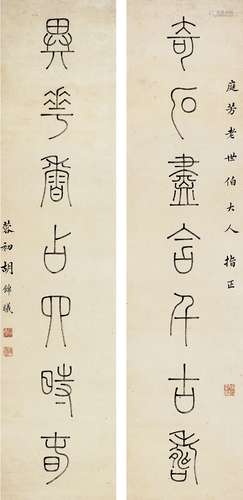 庭芳老世伯大人 指正
奇石盡含千古秀
異華香占四時春
蓉初胡錦曦